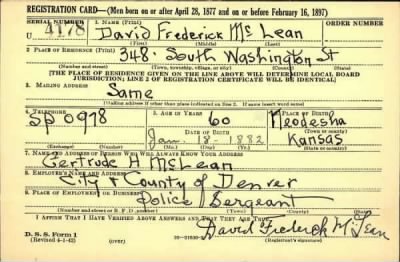 REGISTRATION CARD—(Men born on or after April 28, 1877 and on or before February 16, 1897)
SERIAL NUMBER 1. NAME (Print)
U 4178 David Frederick McLean
(First) (Middle) (Last)
2. PLACE OF RESIDENCE (Print)
348 South Washington St
(Number and street) (Town, township, village, or city) (County) (State)
[THE PLACE OF RESIDENCE GIVEN ON THE LINE ABOVE WILL DETERMINE LOCAL BOARD
JURISDICTION; LINE 2 OF REGISTRATION CERTIFICATE WILL BE IDENTICAL]
3. MAILING ADDRESS
Same
[Mailing address if other than place indicated on line 2. If same insert word same]
4. TELEPHONE 5. AGE IN YEARS 6. PLACE OF BIRTH
SP 0978 60 Neodesha
DATE OF BIRTH (Town or county)
Jan. 18 - 1882 Kansas
(Mo.) (Day) (Yr.) (State or country)
7. NAME AND ADDRESS OF PERSON WHO WILL ALWAYS KNOW YOUR ADDRESS
Gertrude H McLean
8. EMPLOYER'S NAME AND ADDRESS
City & County of Denver
9. PLACE OF EMPLOYMENT OR BUSINESS
Police Sergeant
(Number and street or R. F. D. number) (Town) (County) (State)
I AFFIRM THAT I HAVE VERIFIED ABOVE ANSWERS AND THAT THEY ARE TRUE.
D. S. S. Form 1 David Frederick McLean
(Revised 4-1-42) (over) (Registrant's signature)